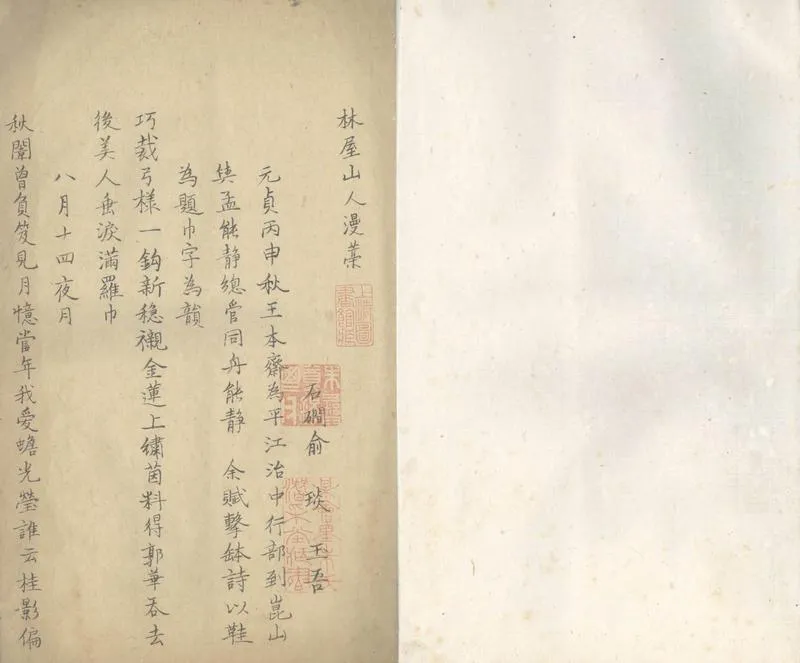 林屋山人漫藁
上海圖書館藏
石磵俞琰玉吾
元貞丙申秋王本齋為平江治中行部到崑山
與孟能靜總管同舟能靜 余賦擊缽詩以鞋
為題巾字為韻
巧裁弓樣一鈎新穩襯金蓮上繡茵料得郭華吞去
後美人垂淚滿羅巾
八月十四夜月
秋闈曾負笈見月憶當年我愛蟾光瑩誰云桂影偏